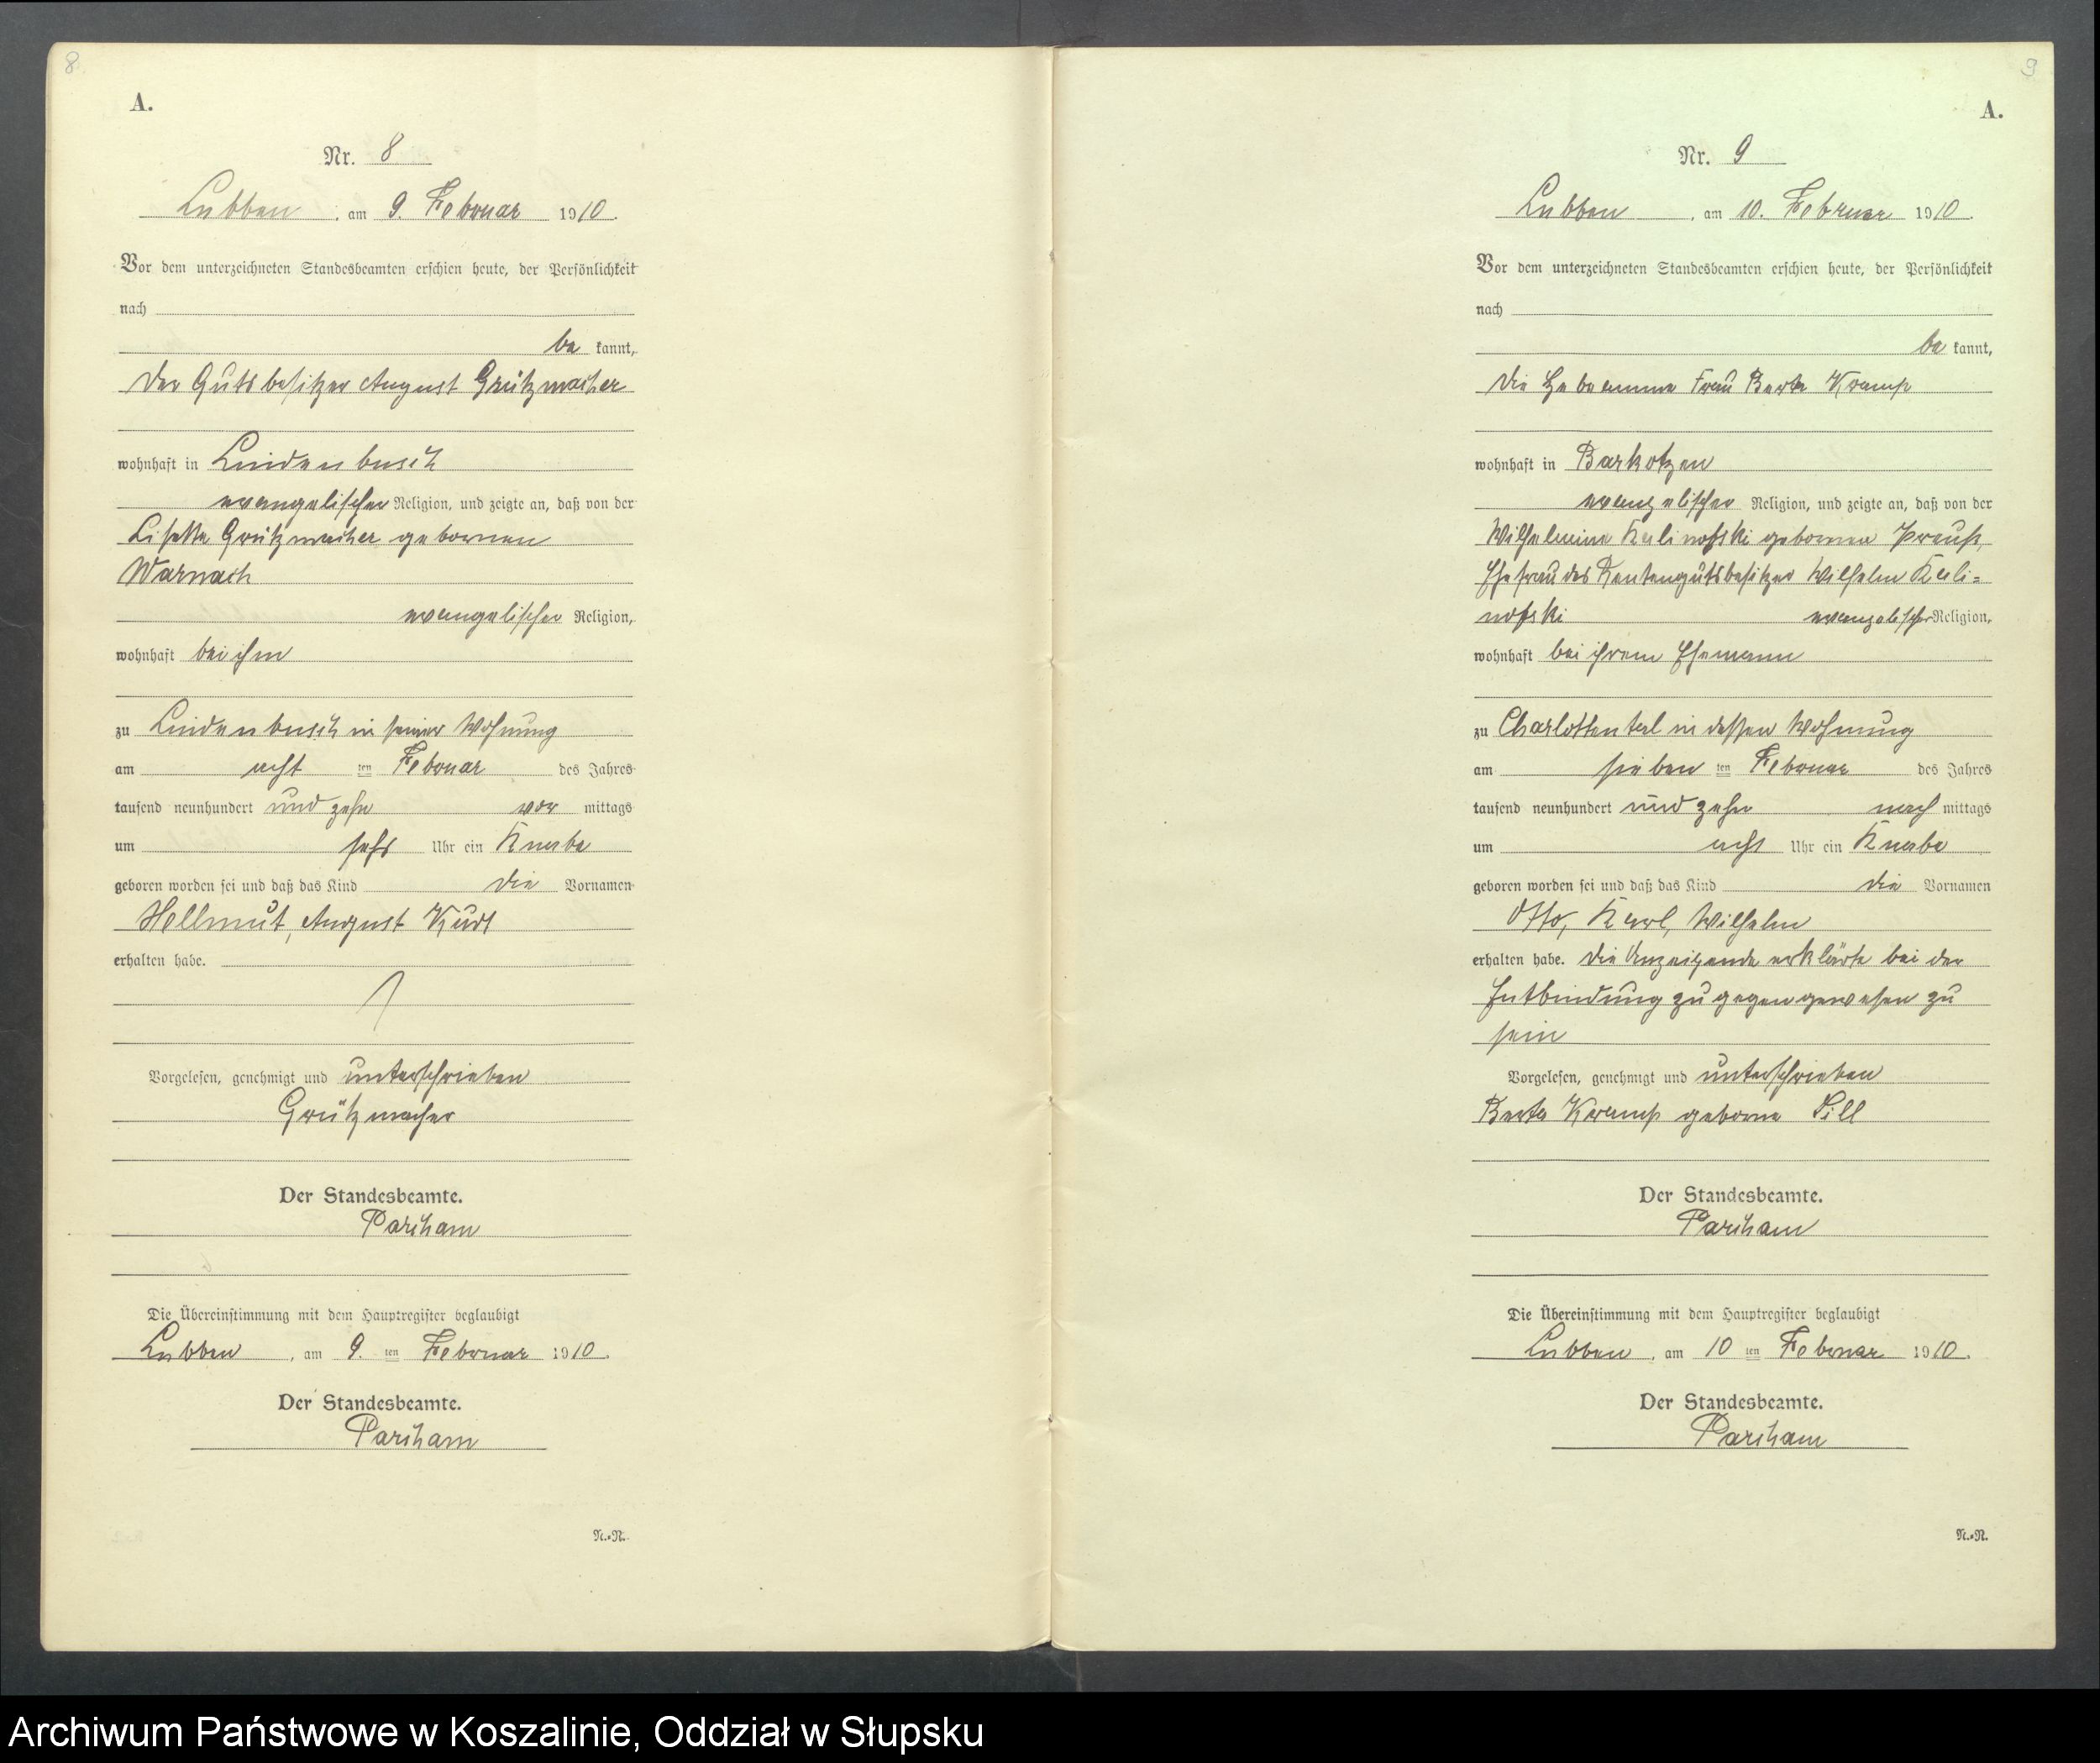 8
A.
Nr. 8
Lubben, am 9. Februar 1910.
Vor dem unterzeichneten Standesbeamten erschien heute, der Persönlichkeit
nach
be kannt,
der Gutsbesitzer August Grützmacher
wohnhaft in Lindenbusch
evangelischer Religion, und zeigte an, daß von der
Lisette Grützmacher gebornen
Warnach
evangelischer Religion,
wohnhaft bei ihm
zu Lindenbusch in seiner Wohnung
am acht ten Februar des Jahres
tausend neunhundert und zehn vor mittags
um sechs Uhr ein Knabe
geboren worden sei und daß das Kind die Vornamen
Hellmut, August Kurt
erhalten habe.
Vorgelesen, genehmigt und unterschrieben
Grützmacher
Der Standesbeamte.
Parcham
Die Übereinstimmung mit dem Hauptregister beglaubigt
Lubben, am 9. ten Februar 1910.
Der Standesbeamte.
Parcham
N.=N.
9
A.
Nr. 9
Lubben, am 10. Februar 1910.
Vor dem unterzeichneten Standesbeamten erschien heute, der Persönlichkeit
nach
be kannt,
die Hebeamme Frau Berta Kramp
wohnhaft in Barkotzen
evangelischer Religion, und zeigte an, daß von der
Wilhelmine Kalinofski gebornen Preuß,
Ehefrau des Rentengutsbesitzer Wilhelm Kali=
nofski evangelischer Religion,
wohnhaft bei ihrem Ehemann
zu Charlottental in dessen Wohnung
am sieben ten Februar des Jahres
tausend neunhundert und zehn nach mittags
um acht Uhr ein Knabe
geboren worden sei und daß das Kind die Vornamen
Otto, Karl, Wilhelm
erhalten habe. Die Anzeigende erklärte bei der
Entbindung zugegen gewesen zu
sein
Vorgelesen, genehmigt und unterschrieben
Berta Kramp geborne Pill
Der Standesbeamte.
Parcham
Die Übereinstimmung mit dem Hauptregister beglaubigt
Lubben, am 10 ten Februar 1910.
Der Standesbeamte.
Parcham
N.=N.
Archiwum Państwowe w Koszalinie, Oddział w Słupsku